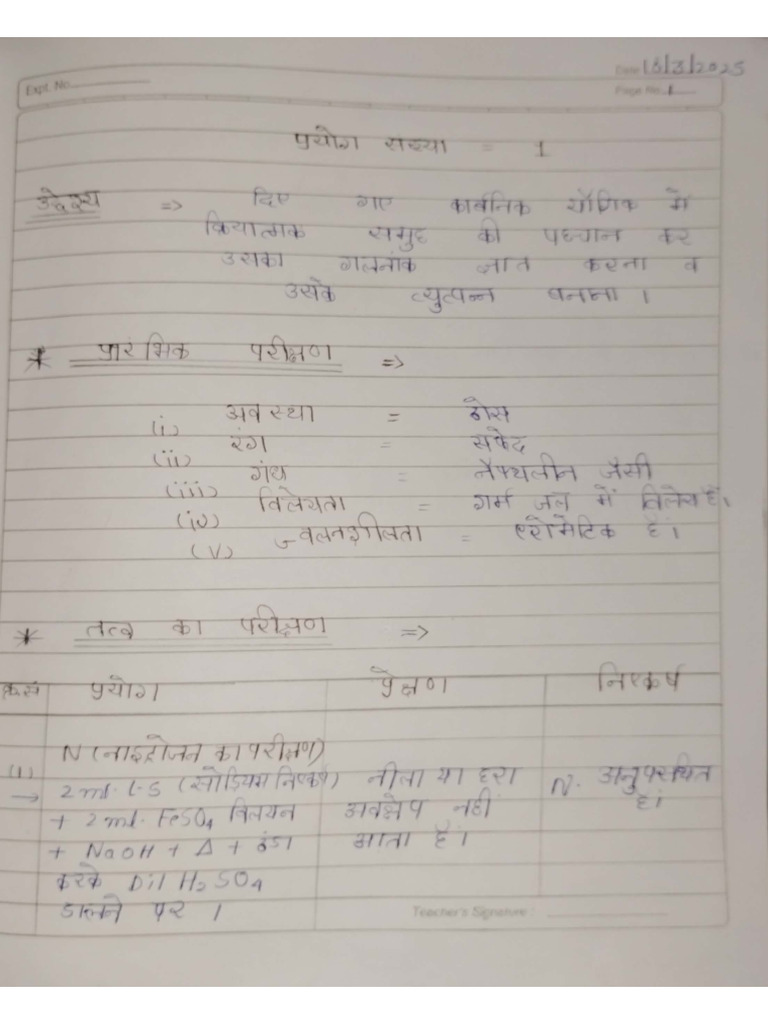 Date 15/3/2025
Expt. No.
Page No. 1
प्रयोग संख्या = 1
उद्देश्य => दिए गए कार्बनिक यौगिक में
क्रियात्मक समुह की पहचान कर
उसका गलनांक ज्ञात करना व
उसके व्युत्पन्न बनाना ।
* प्रारंभिक परीक्षण =>
(i) अवस्था = ठोस
(ii) रंग = सफेद
(iii) गंध = नैफ्थलीन जैसी
(iv) विलेयता = गर्म जल में विलेय है।
(v) ज्वलनशीलता = एरोमेटिक है।
* तत्व का परीक्षण =>
क्र.स प्रयोग प्रेक्षण निष्कर्ष
N (नाइट्रोजन का परीक्षण)
(1) → 2 ml. L.S (सोडियम निष्कर्ष) नीला या हरा N. अनुपस्थित
+ 2 ml. FeSO4 विलयन अवक्षेप नहीं है।
+ NaOH + Δ + ठंडा आता है।
करके Dil H2SO4
डालने पर ।
Teacher's Signature :